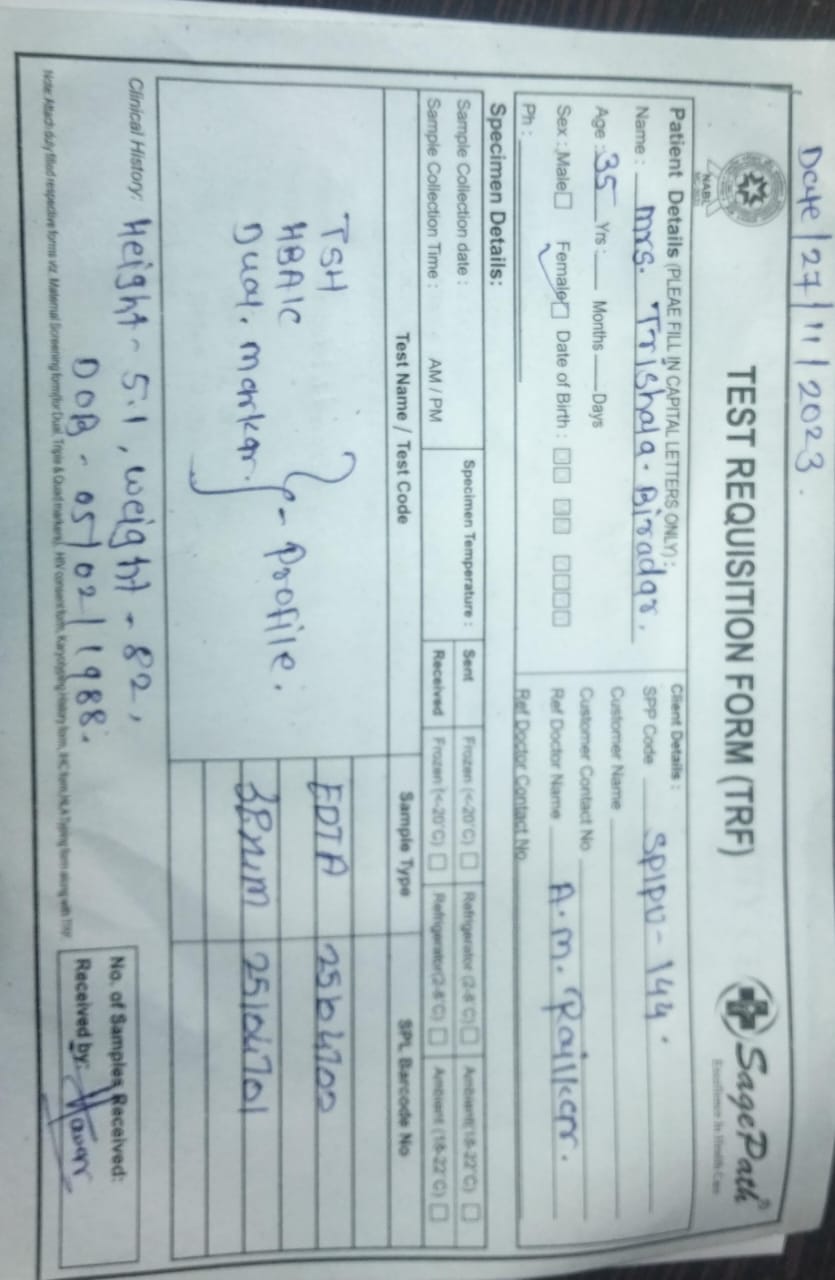 Date / 27/11/2023.
NABL
TEST REQUISITION FORM (TRF)
SagePath®
Excellence In Health Care
Patient Details (PLEAE FILL IN CAPITAL LETTERS ONLY) :
Name : Mrs. Trishala. Biradar.
Age : 35 Yrs : Months Days
Sex : Male Female Date of Birth :
Ph :
Client Details :
SPP Code SPIPU-144.
Customer Name
Customer Contact No
Ref Doctor Name A.M.
Ref Doctor Contact No
Specimen Details:
Sample Collection date : Specimen Temperature : Sent Frozen (<-20°C) Refrigerator (2-8°C) Ambient (18-22°C)
Sample Collection Time : AM / PM Received Frozen (<-20°C) Refrigerator (2-8°C) Ambient (18-22°C)
Test Name / Test Code Sample Type SPL Barcode No
TSH EDTA
HBA1C - Profile.
Dual. Markar. 25104701
Clinical History: Height - 5.1, weight - 82,
DOB - 05/02/1988.
No. of Samples Received:
Received by:
Note: Attach duly filled respective forms viz. Maternal Screening form(for Dual, Triple & Quad markers), HIV consent form, Karyotyping History form, IHC form, HLA Typing form along with TRF